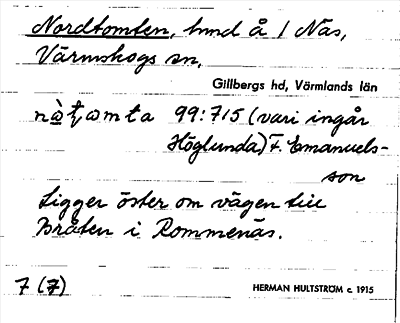 Nordtomten, hmd å 1 Näs,
Värmskogs sn,
Gillbergs hd, Värmlands län
99:715 (vari ingår
Höglunda) F. Emanuels-
son
Ligger öster om vägen till
Bråten i Rommenäs.
7 (7)
HERMAN HULTSTRÖM c. 1915